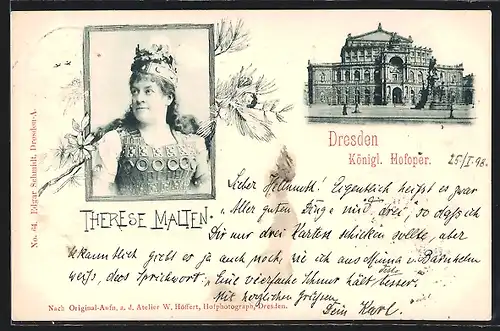 No. 64. Edgar Schmidt, Dresden-A.
THERESE MALTEN.
Dresden
Königl. Hofoper.
25/I 98.
Lieber Hellmuth! Eigentlich heißt es zwar
"Aller guten Dinge sind drei", so daß ich
Dir nur drei Karten schicken sollte, aber
bekanntlich giebt es ja auch noch, wie ich aus Minna v. Barnhelm
weiß, das Sprichwort: "Eine vierfache Schnur hält desto besser.
Mit herzlichen Grüßen
Dein Karl.
Nach Original-Aufn. a. d. Atelier W. Höffert, Hofphotograph, Dresden.